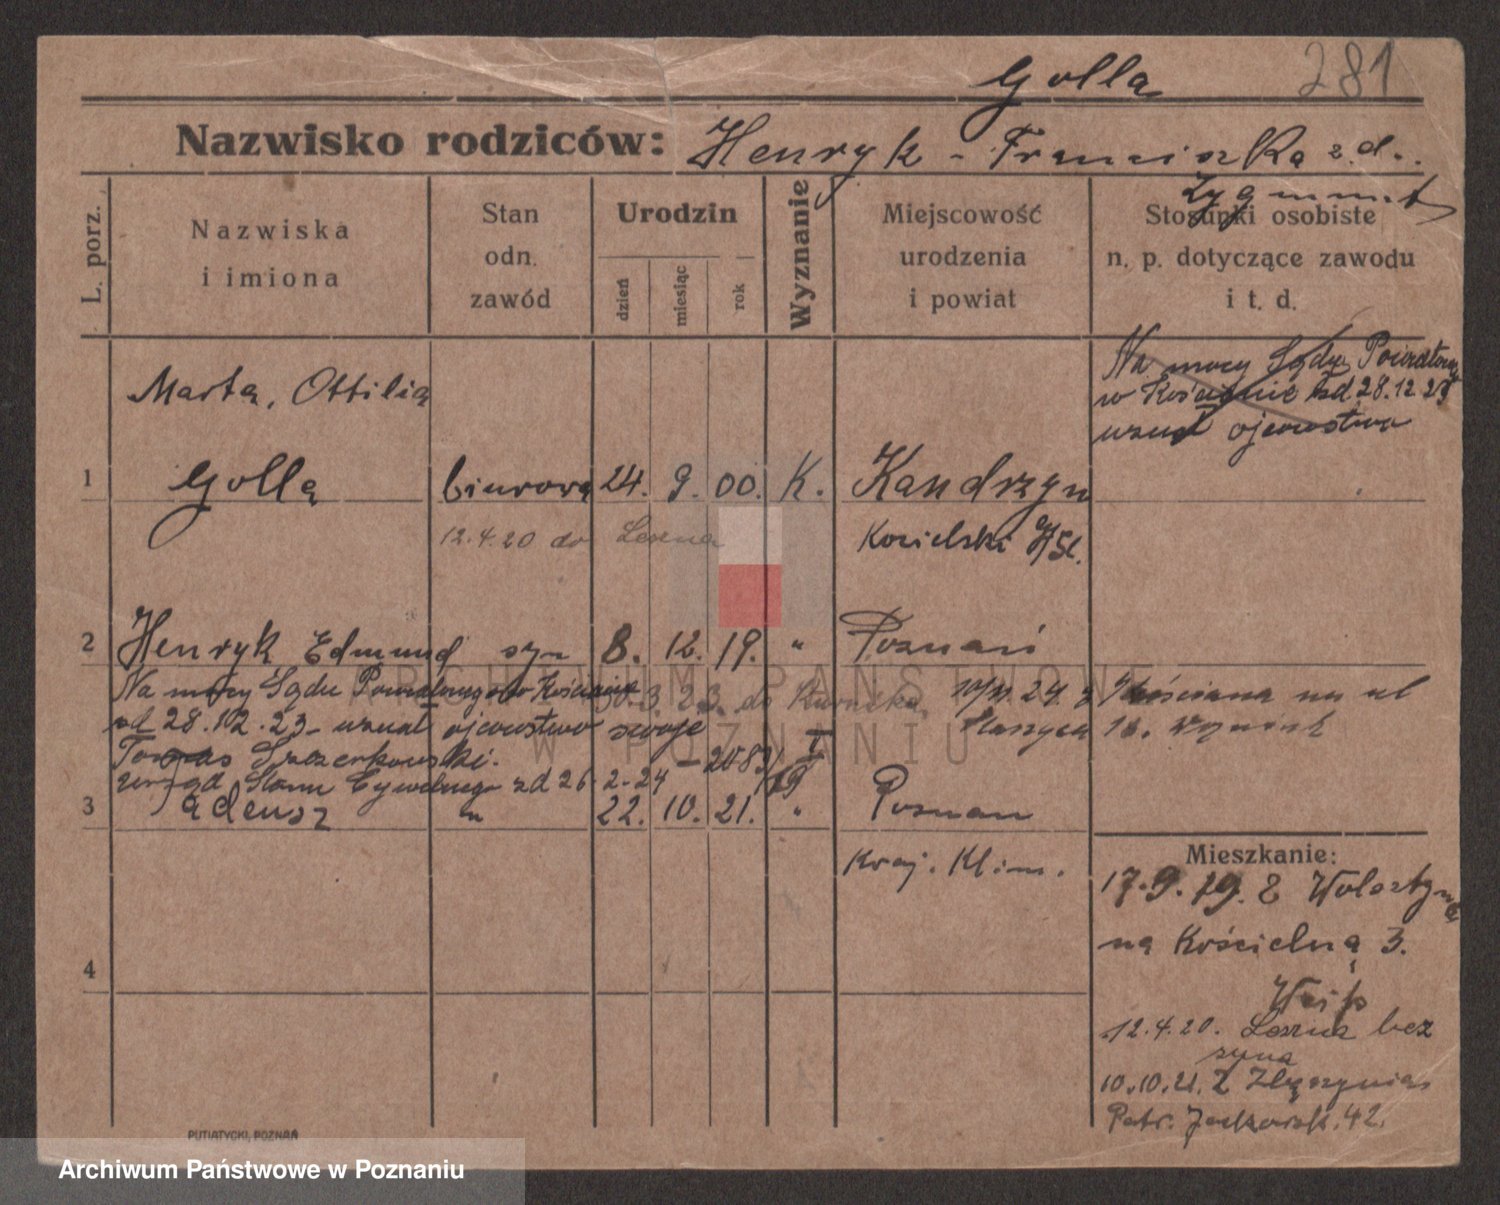 281
Golla
Nazwisko rodziców: Henryk - Franciszka z d.
Zygmunt
L. porz.
Nazwiska i imiona
Stan odn. zawód
Urodzin
dzień
miesiąc
rok
Wyznanie
Miejscowość urodzenia i powiat
Stosunki osobiste n. p. dotyczące zawodu i t. d.
Na mocy Sądu Powiatowego
w Kościanie zd 28.12.23
uznał ojcowstwo
Marta, Ottilia
1 Golla biurowa 24. 9. 00. K. Kandrzyn
12.4.20 do Leszna
Kozielski G/Śl.
2 Henryk Edmund syn 8. 12. 19. " Poznań
Na mocy Sądu Powiatowego w Kościanie
3.23. do
24 z Kościana na ul
zd 28.12.23 uznał ojcowstwo swoje
Staszyca 16.
Tomas Szczerkowski.
Urząd Stanu Cywilnego zd 26.2.24
3 Tadeusz " 22. 10. 21. " Poznan
Kraj. Klin.
4
Mieszkanie:
17.9.19. z Wolsztyna
na Kościelną 3.
12.4.20. Leszna bez
syna
10.10.21. Z Zbęszynia
Patr. Jackowsk. 42.
PUTIATYCKI, POZNAŃ
ARCHIWUM PAŃSTWOWE
W POZNANIU
Archiwum Państwowe w Poznaniu